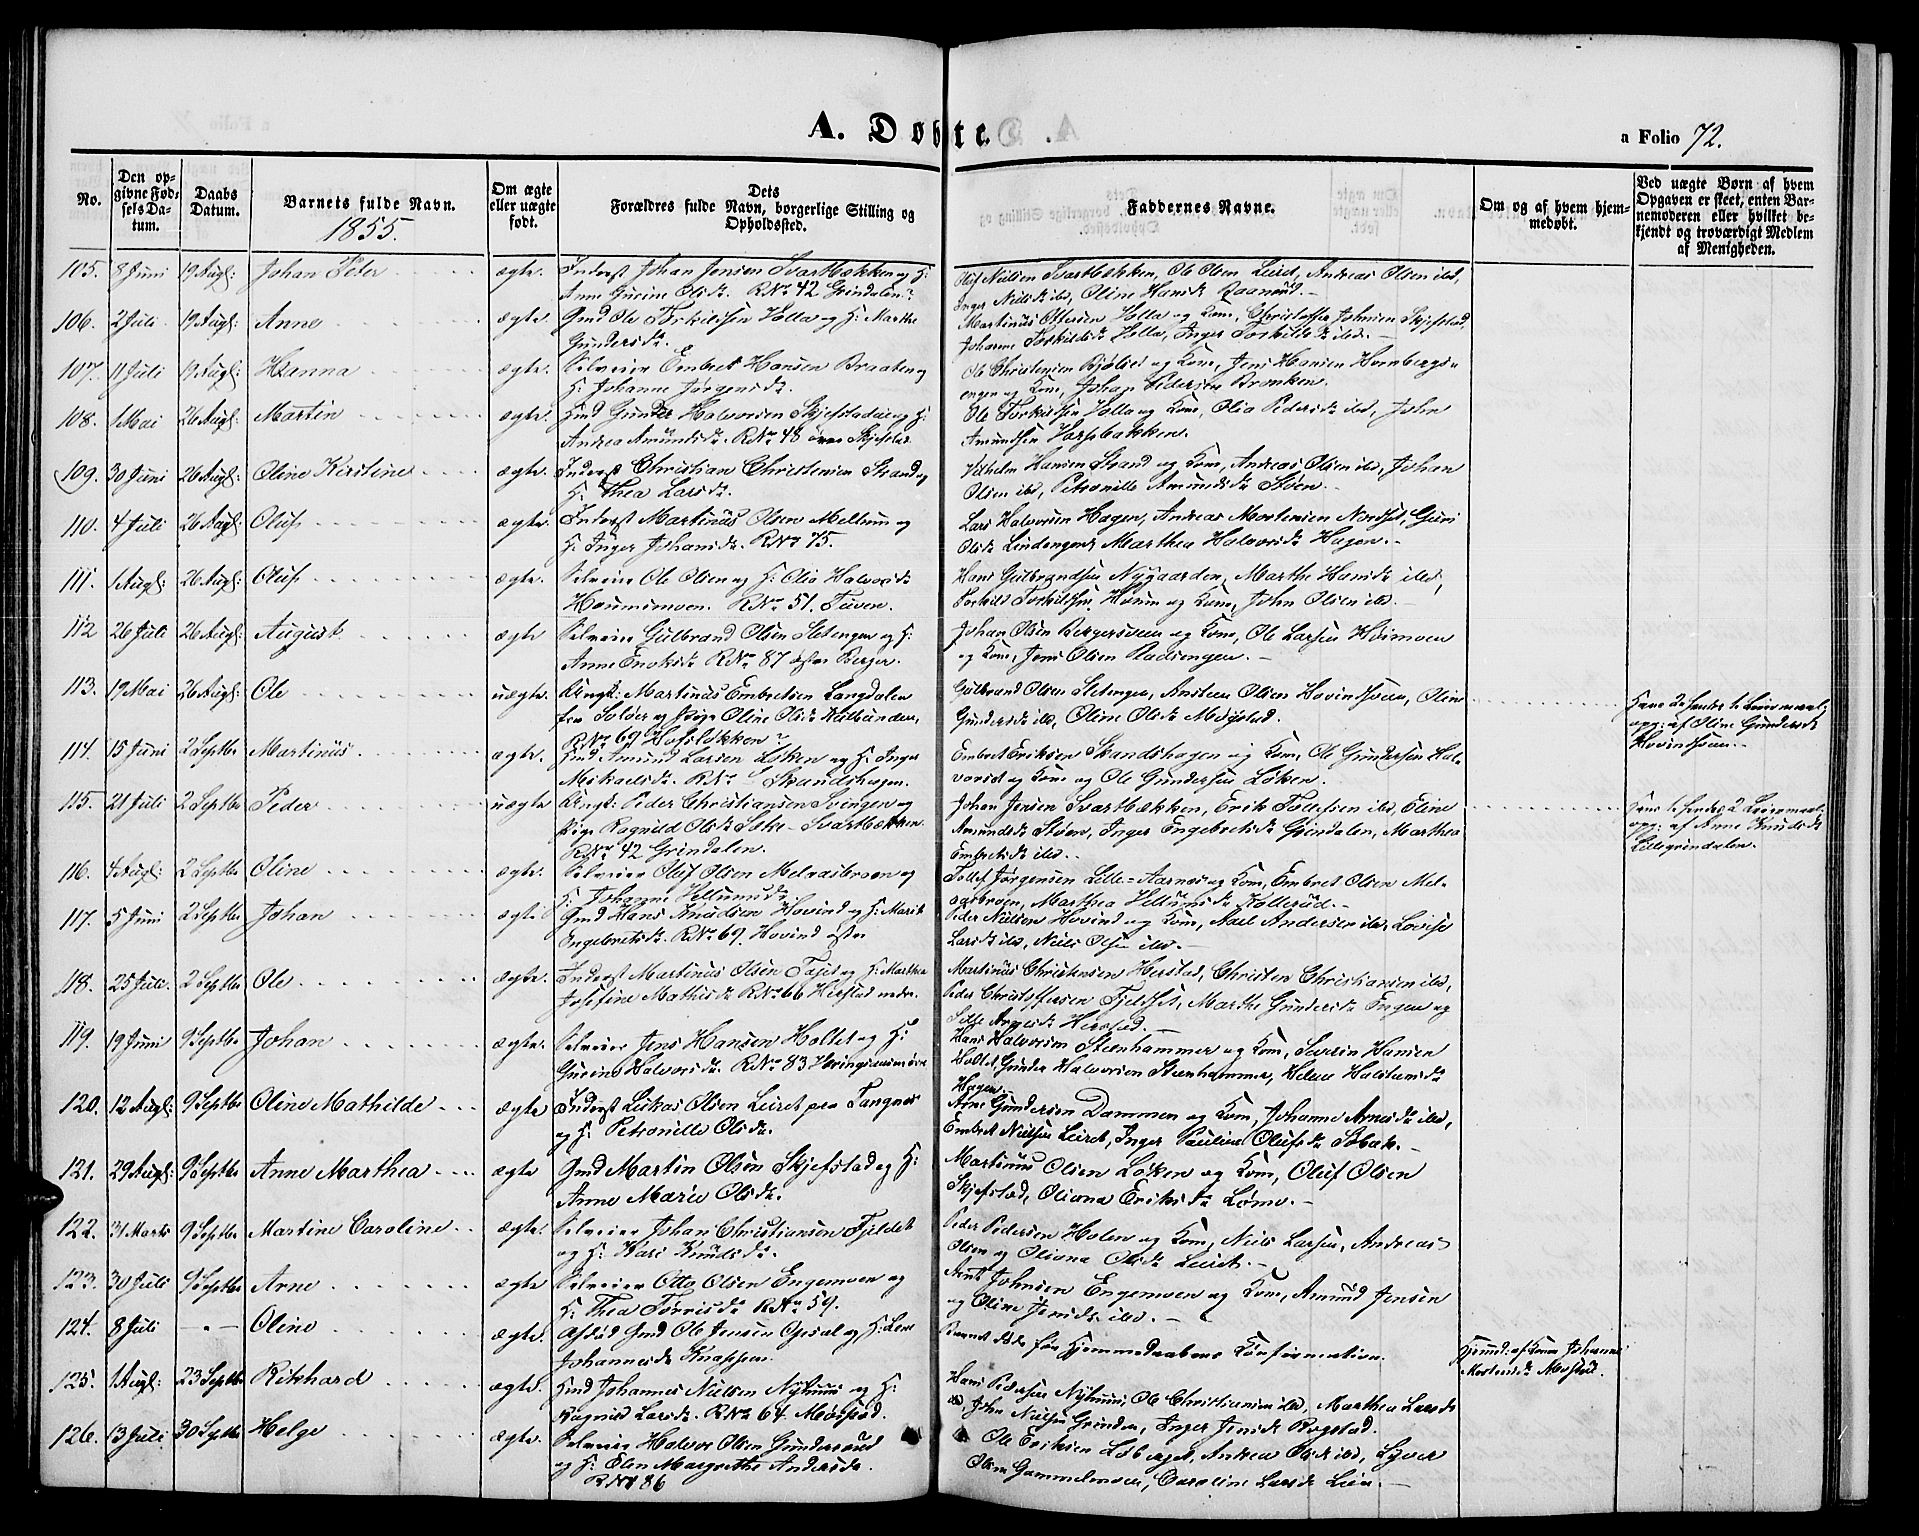 A. Døbte.
a Folio 72.
No.
Den opgivne Fødsels Datum.
Daabs Datum.
Barnets fulde Navn.
1855.
Om ægte eller uægte født.
Dets Forældres fulde Navn, borgerlige Stilling og Opholdssted.
Faddernes Navne.
Om og af hvem hjemmedøbt.
Ved uægte Børn af hvem Opgaven er skeet, enten Barnemoderen eller hvilket bekjendt og troværdigt Medlem af Menigheden.
105. 8 Juni 19 Augl: Johan Peter ægte. Inderst Johan Jensen Svartbækken og H:
Anne Gurine Olsdr. RNr 42 Grindalen.
Oluf Nielsen Svartbækken, Ole Olsen Leiret, Andreas Olsen ibd,
Inger Nielsdr ibd, Oline Hansdr
106. 2 Juli 19 Augl: Anne ægte Gmd Ole Torkildsen Holla og H: Marthe
Gundersdr.
Martinus Ottersen Holla og Kone, Christoffer Johnsen Skjefstad,
Johanne Torkildsdr Holla, Inger Torkildsdr ibd.
107. 11 Juli 19 Augl: Hanna ægte. Selveier Embret Hansen Braaten og
H: Johanne Jørgensdr.
Ole Christensen Bjølset og Kone, Jens Hansen Hornbergs-
engen og Kone, Johan Pedersen Bronken.
108. 1 Mai 26 Augl: Martin ægte. Hmd Gunder Halvorsen Skjefstad og H:
Andrea Amundsdr. RNr 48 Skjefstad
Ole Torkildsen Holla og Kone, Olia Pedersdr ibd, John
Amundsen
109. 30 Juni 26 Augl: Oline Kirstine ægte. Inderst Christian Christensen Strand og
H: Thea Larsdr.
Vilhelm Hansen Strand og Kone, Andreas Olsen ibd, Johan
Olsen ibd, Petronille Amundsdr Støen.
110. 4 Juli 26 Augl: Oluf ægte. Inderst Martinus Olsen Mellum og
H: Inger Johansdr. RNr 75.
Lars Halvorsen Hagen, Andreas Mortensen Nordset, Guri
Olsdr Lindengen, Marthea Halvorsdr Hagen.
111. 1 Augl: 26 Augl: Oluf ægte. Selveier Ole Olsen og H: Olia Halvorsdr
RNr 51. Tuven.
Hans Gulbrandsen Nygaarden, Marthe Hansdr ibd,
Torkild Torkildsen og Kone, John Olsen ibd.
112 26 Juli 26 Augl: August ægte Selveier Gulbrand Olsen Sletengen og H:
Anne Enoksdr RNr 87 Berger.
Johan Olsen Bergersveen og Kone, Ole Larsen
og Kone, Jens Olsen
113. 19 Mai 26 Augl: Ole uægte. Ungk: Martinus Embretsen Langdalen
fra Solør og Pige Oline Olsdr
RNr 69
Gulbrand Olsen Sletengen, Amsteen Olsen Hovindsveen, Oline
Gundersdr ibd, Oline Olsdr
Hans 2 hendes 1 Leiermaal
opg: af Oline Gundersdr
Hovindsveen.
114. 15 Juni 2 Septbr Martinus ægte. Gmd Amund Larsen Løken og H: Inger
Mikaelsdr. RNr Skandshagen.
Embret Eriksen Skandshagen og Kone, Ole Gundersen
og Kone og Ole Gundersen Løken.
115. 21 Juli 2 Septbr Peder uægte Ungk: Peder Christiansen Svingen og
Pige Ragnild Olsdr Svartbækken
RNr 42 Grindalen.
Johan Jensen Svartbækken, Erik Tollefsen ibd, Eline
Amundsdr Støen, Inger Engebretsdr Grindalen, Marthea
Embretsdr ibd.
Hans 1 hendes 2 Leiermaal
opg: af Anne Knudsdr
Lillegrindalen.
116. 4 Augl: 2 Septbr Oline ægte. Selveier Oluf Olsen Melaasbroen og
H: Johanne
Tollef Jørgensen Lille-Aarnes og Kone, Embret Olsen Mel-
aasbroen, Marthea
117. 5 Juni 2 Septbr Johan ægte Gmd Hans Knudsen Hovind og H: Marit
Engebretsdr. RNr 69. Hovind
Peder Nielsen Hovind og Kone, Axel Andersen ibd, Lovise
Larsdr ibd, Niels Olsen ibd.
118. 25 Juli 2 Septbr Ole ægte. Inderst Martinus Olsen og H: Marthea
Josefine Mathisdr RNr 66 Herstad nedre.
Martinus Christensen Herstad, Christen Christiansen ibd,
Peder Christoffersen Fjeldset, Marthe Gundersdr Engen og
Herstad.
119. 19 Juni 9 Septbr Johan ægte. Selveier Jens Hansen Holtet og H:
Gurine Halvorsdr. RNr 83
Hans Halvorsen Steenhammer og Kone, Severin Hansen
Holtet, Gunder Halvorsen Steenhammer, Helene Halstensdr
Hagen.
120. 12 Augl: 9 Septbr Oline Mathilde ægte Inderst Lukas Olsen Leiret fra Tangnes
og H: Petronille Olsdr.
Arne Gundersen Dammen og Kone, Johanne Arnesdr ibd,
Embret Nielsen Leiret, Inger Pauline Olufsdr
121. 29 Augl: 9 Septbr Anne Marthea ægte Gmd Martin Olsen Skjefstad og H:
Anne Marie Olsdr.
Martinus Olsen Løken og Kone, Oluf Olsen
Skjefstad, Oliana Eriksdr
122. 31 Marts 9 Septbr Martine Caroline ægte. Selveier Johan Christiansen Fjeldet
og H: Kari Knudsdr.
Peder Pedersen Holen og Kone, Niels Larsen, Andreas
Olsen og Oliana Olsdr Leiret.
123. 30 Juli 9 Septbr Arne ægte Selveier Otto Olsen Engemoen og
H: Thea Torrisdr RNr 59.
Arnt Johnsen Engemoen og Kone, Amund Jensen
og Oline Jensdr ibd.
124. 8 Juli Oline ægte. Afdød Gmd Ole Jensen Opsal og H: Lene
Johannesdr Knappen
Barnet døde før Hjemmedaabens Konfirmation.
Hjemmd: af Kone Johanne
Mortensdr Mostad.
125. 1 Augl: 23 Septbr Rikhard ægte Hmd Johannes Nielsen Nyhuus og H:
Ragnild Larsdr. RNr 64. Mørstad.
Hans Pedersen Nyhuus, Ole Christiansen ibd, Marthea Larsdr
ibd, John Nielsen Grinden, Inger Jensdr Rogstad.
126. 13 Juli 30 Septbr Helge ægte. Selveier Halvor Olsen Gundersrud
og H: Elen Margrethe Andersdr.
RNr 86
Ole Eriksen Løberget, Andrea Olsdr ibd, Syver
Olsen Gammelmoen, Caroline Larsdr Lien.